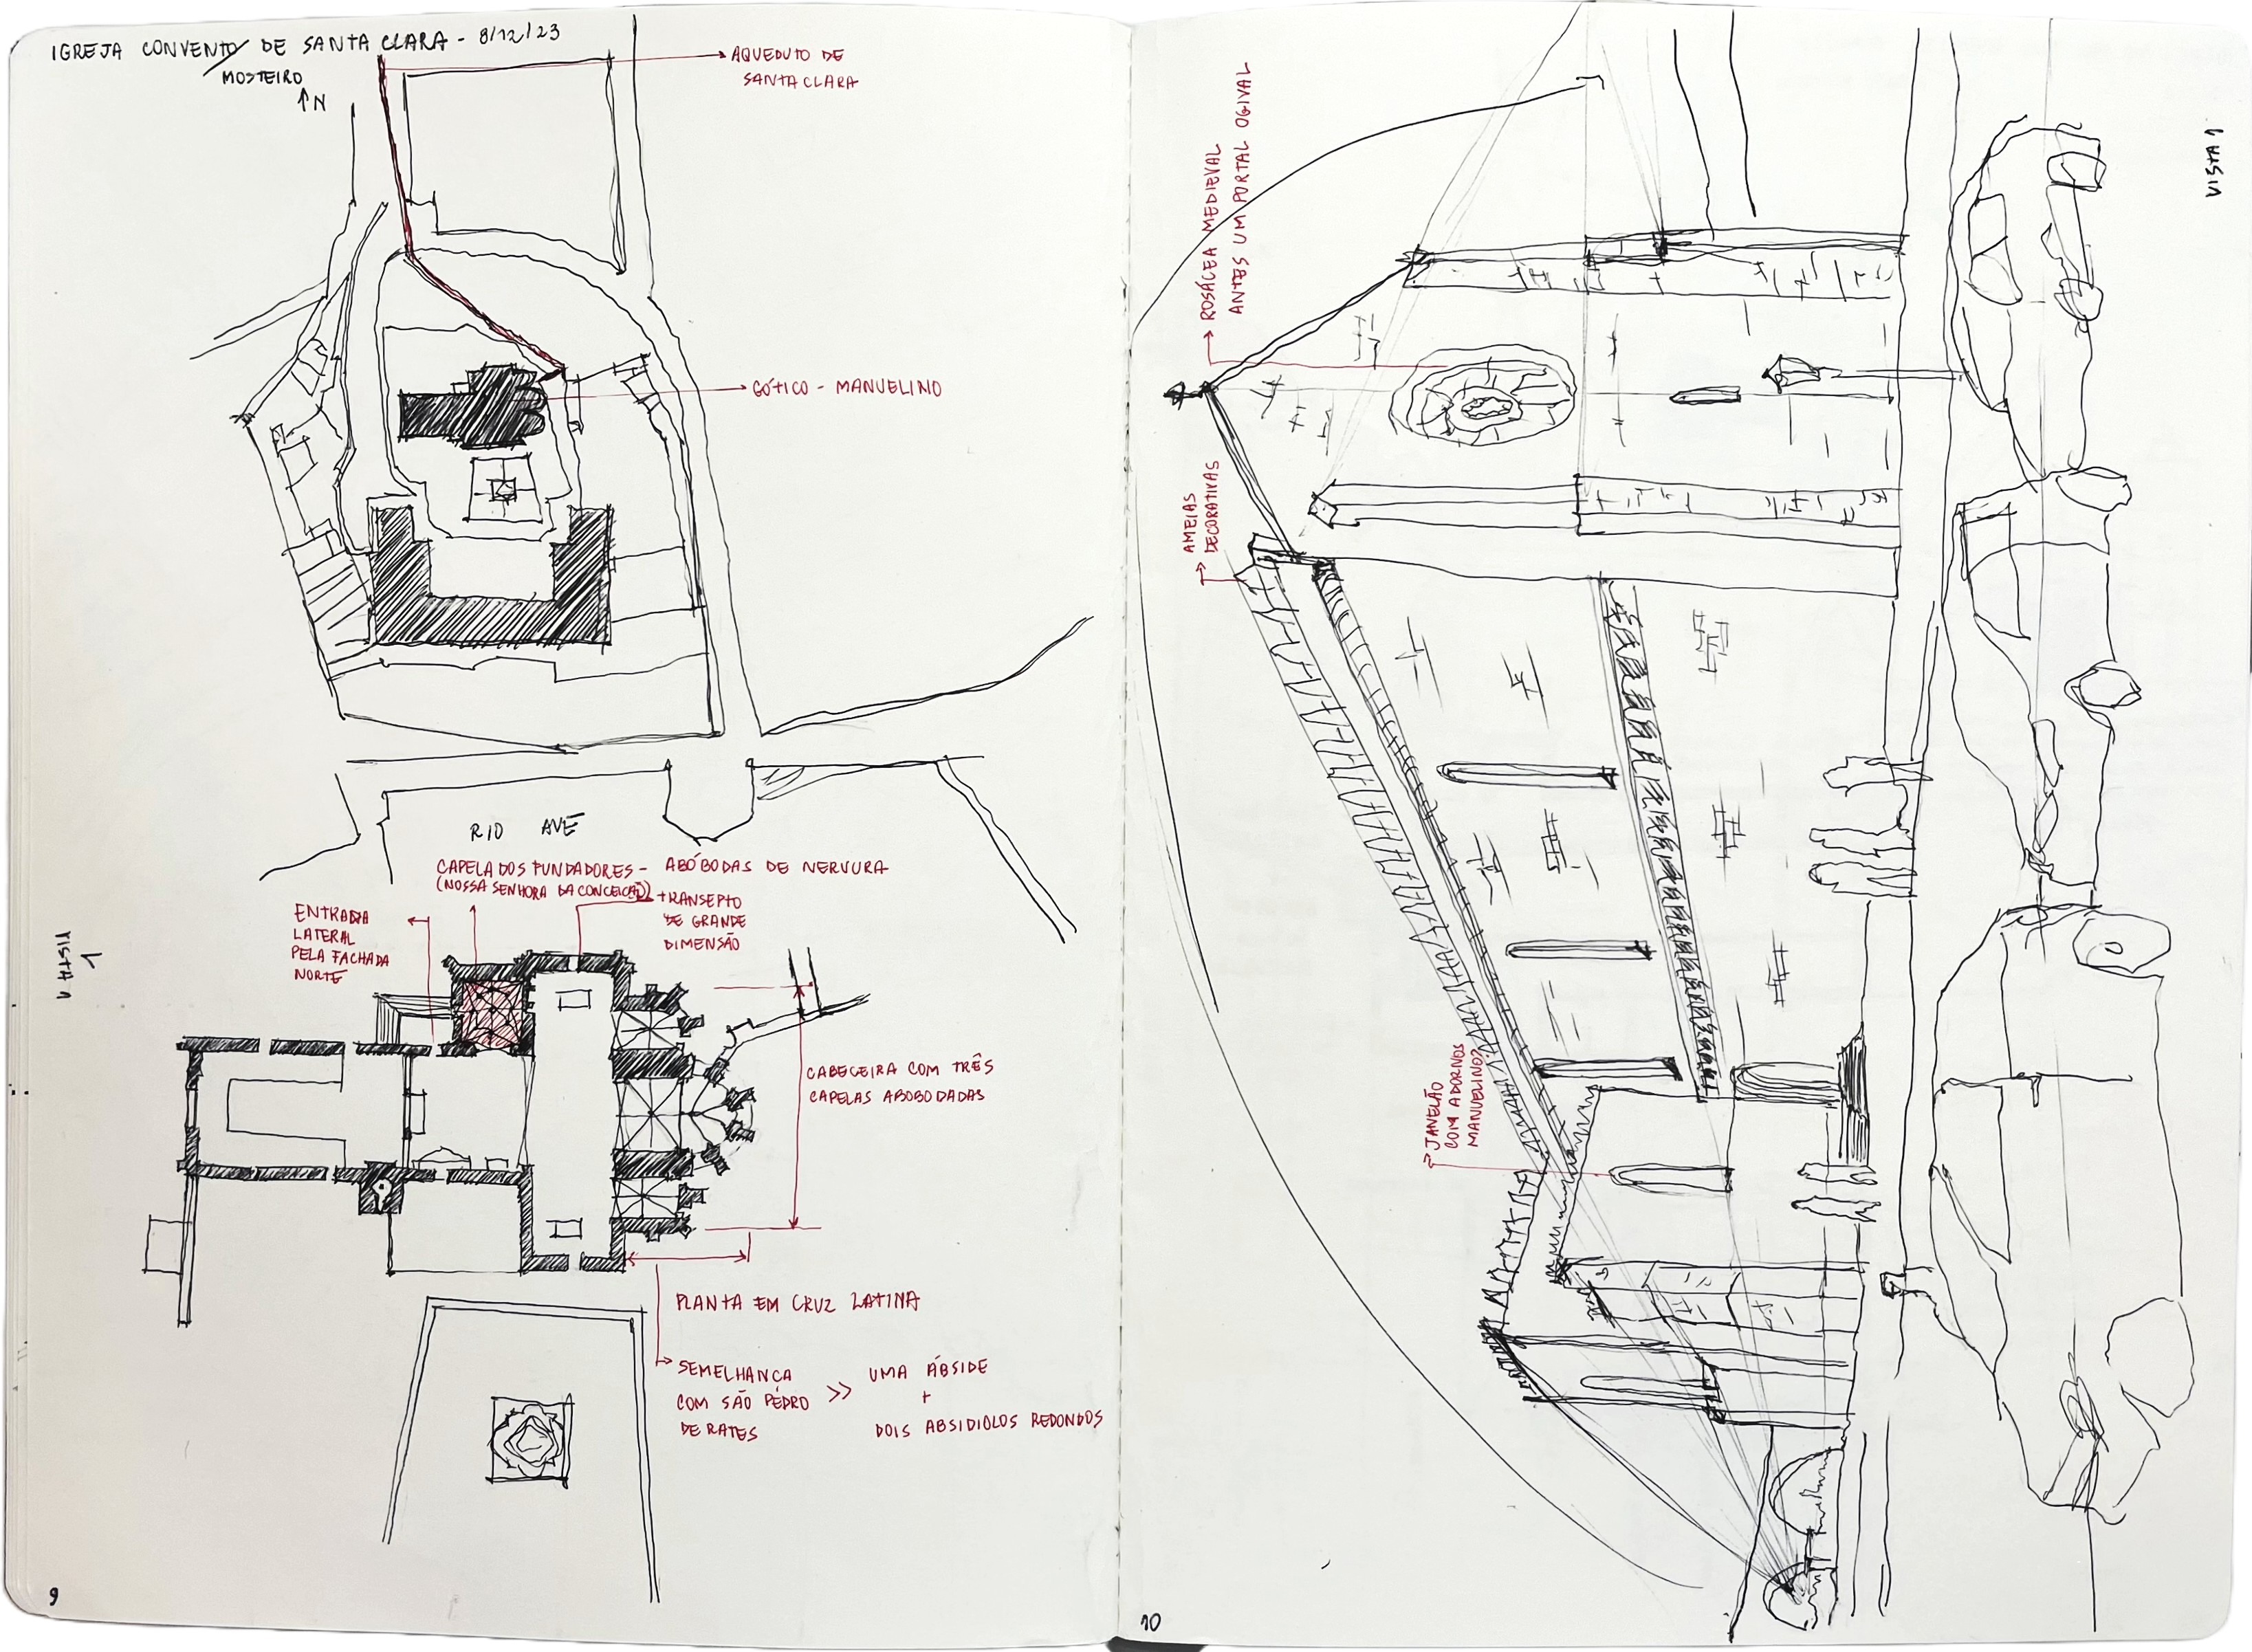 IGREJA CONVENTO DE SANTA CLARA - 8/12/23
MOSTEIRO
↑N
AQUEDUTO DE
SANTA CLARA
GÓTICO - MANUELINO
RIO AVE
CAPELA DOS FUNDADORES - ABÓBODAS DE NERVURA
(NOSSA SENHORA DA CONCEIÇÃO)
TRANSEPTO
DE GRANDE
DIMENSÃO
ENTRADA
LATERAL
PELA FACHADA
NORTE
VISTA
1
CABECEIRA COM TRÊS
CAPELAS ABOBODADAS
PLANTA EM CRUZ LATINA
SEMELHANCA
COM SÃO PEDRO
DE RATES
>>
UMA ÁBSIDE
+
DOIS ABSIDIOLOS REDONDOS
9
ROSÁCEA MEDIEVAL
ANTES UM PORTAL OGIVAL
AMEIAS
DECORATIVAS
JANELÃO
COM ADORNOS
MANUELINO?
VISTA 1
10